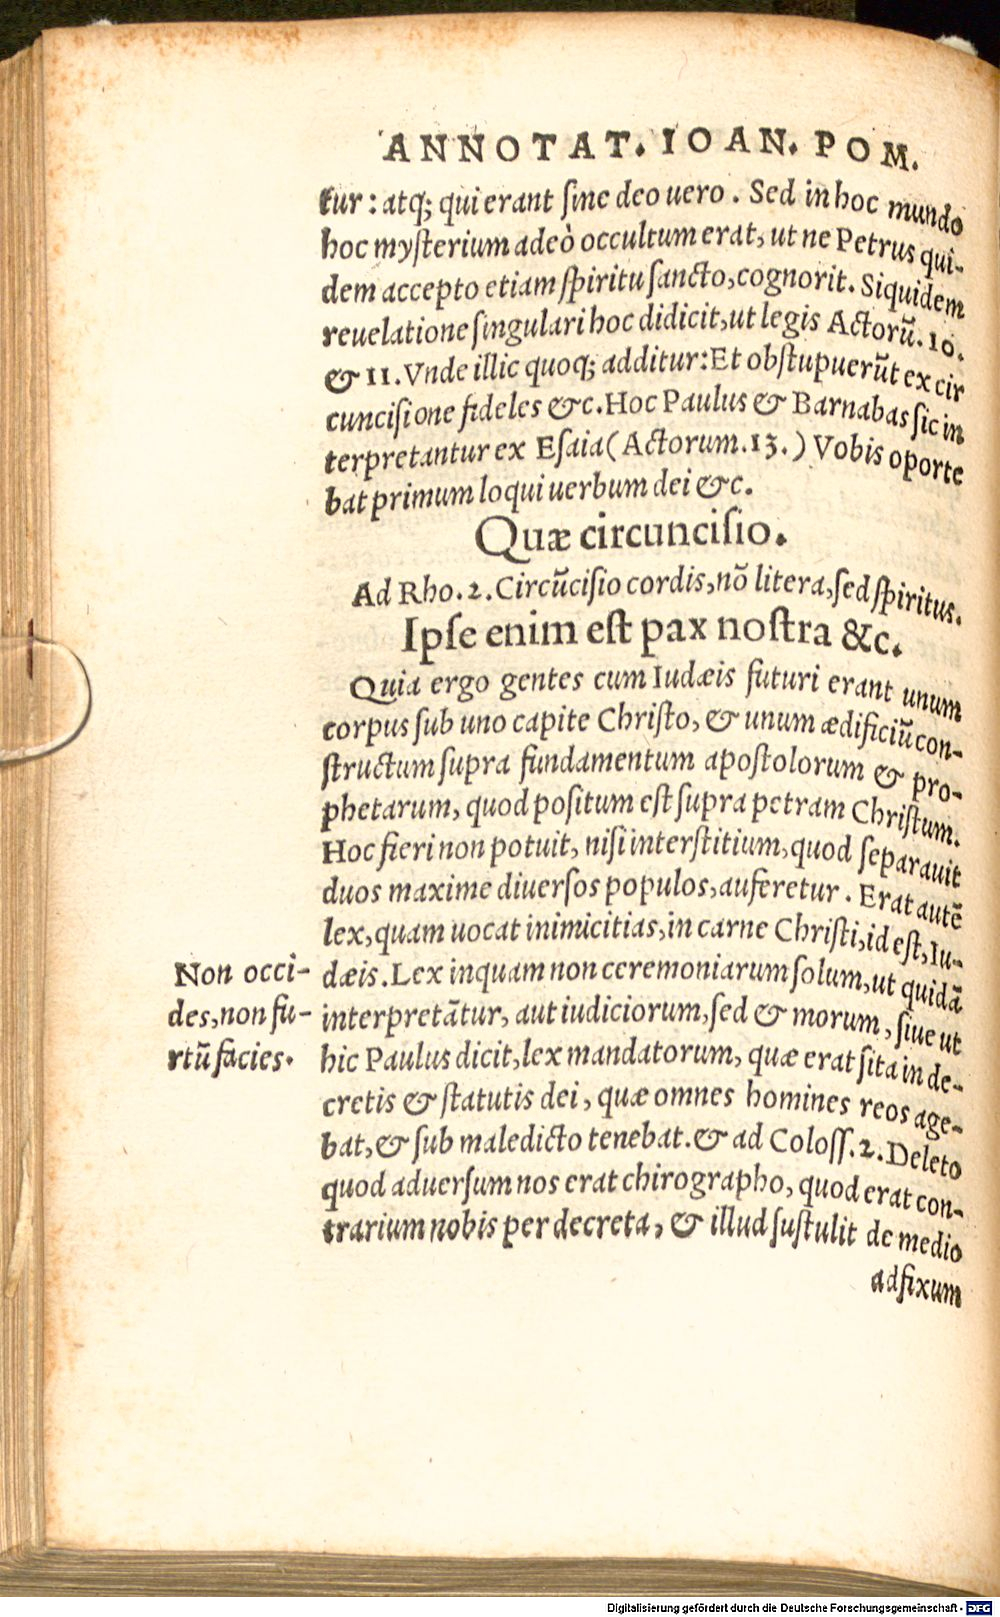 ANNOTAT. IOAN. POM.
tur: atq; qui erant ſine deo uero. Sed in hoc mundo
hoc myſterium adeò occultum erat, ut ne Petrus qui-
dem accepto etiam ſpiritu ſancto, cognorit. Siquidem
reuelatione ſingulari hoc didicit, ut legis Actorū. 10.
& 11. Vnde illic quoq; additur: Et obſtupuerūt ex cir
cunciſione fideles &c. Hoc Paulus & Barnabas ſic in
terpretantur ex Eſaia (Actorum. 13.) Vobis oporte
bat primum loqui uerbum dei &c.
Quæ circunciſio.
Ad Rho. 2. Circūciſio cordis, nō litera, ſed ſpiritus.
Ipſe enim eſt pax noſtra &c.
Quia ergo gentes cum Iudæis futuri erant unum
corpus ſub uno capite Chriſto, & unum ædificiū con-
ſtructum ſupra fundamentum apoſtolorum & pro-
phetarum, quod poſitum eſt ſupra petram Chriſtum.
Hoc fieri non potuit, niſi interſtitium, quod ſeparauit
duos maxime diuerſos populos, auferetur. Erat autē
lex, quam uocat inimicitias, in carne Chriſti, id eſt, Iu-
dæis. Lex inquam non ceremoniarum ſolum, ut quidā
interpretātur, aut iudiciorum, ſed & morum, ſiue ut
hic Paulus dicit, lex mandatorum, quæ erat ſita in de-
cretis & ſtatutis dei, quæ omnes homines reos age-
bat, & ſub maledicto tenebat. & ad Coloſſ. 2. Deleto
quod aduerſum nos erat chirographo, quod erat con-
trarium nobis per decreta, & illud ſuſtulit de medio
adfixum
Non occi-
des, non fu-
rtū facies.
Digitalisierung gefördert durch die Deutsche Forschungsgemeinschaft - DFG